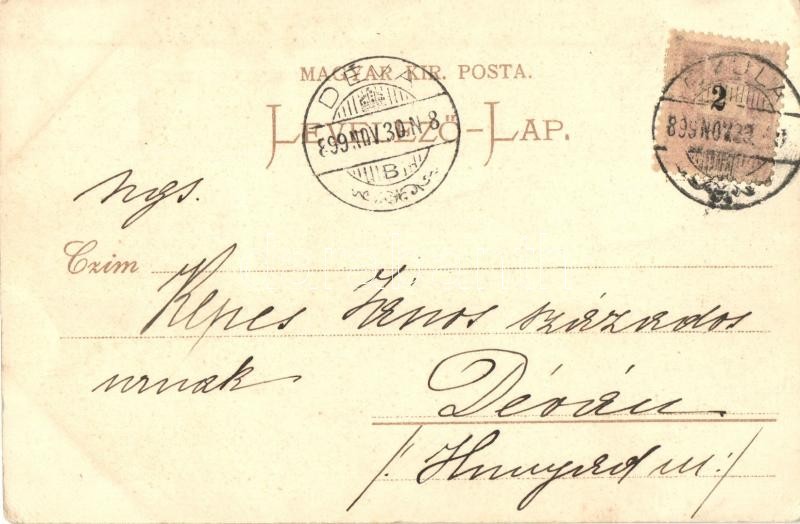 MAGYAR KIR. POSTA.
LEVELEZŐ-LAP.
DÉVA
899 NOV. 30. N 8
B
GYULA
2
899 NOV. 29.
Ngs.
Czim
Kepes János százados
urnak
Déván
/: Hunyad m :/